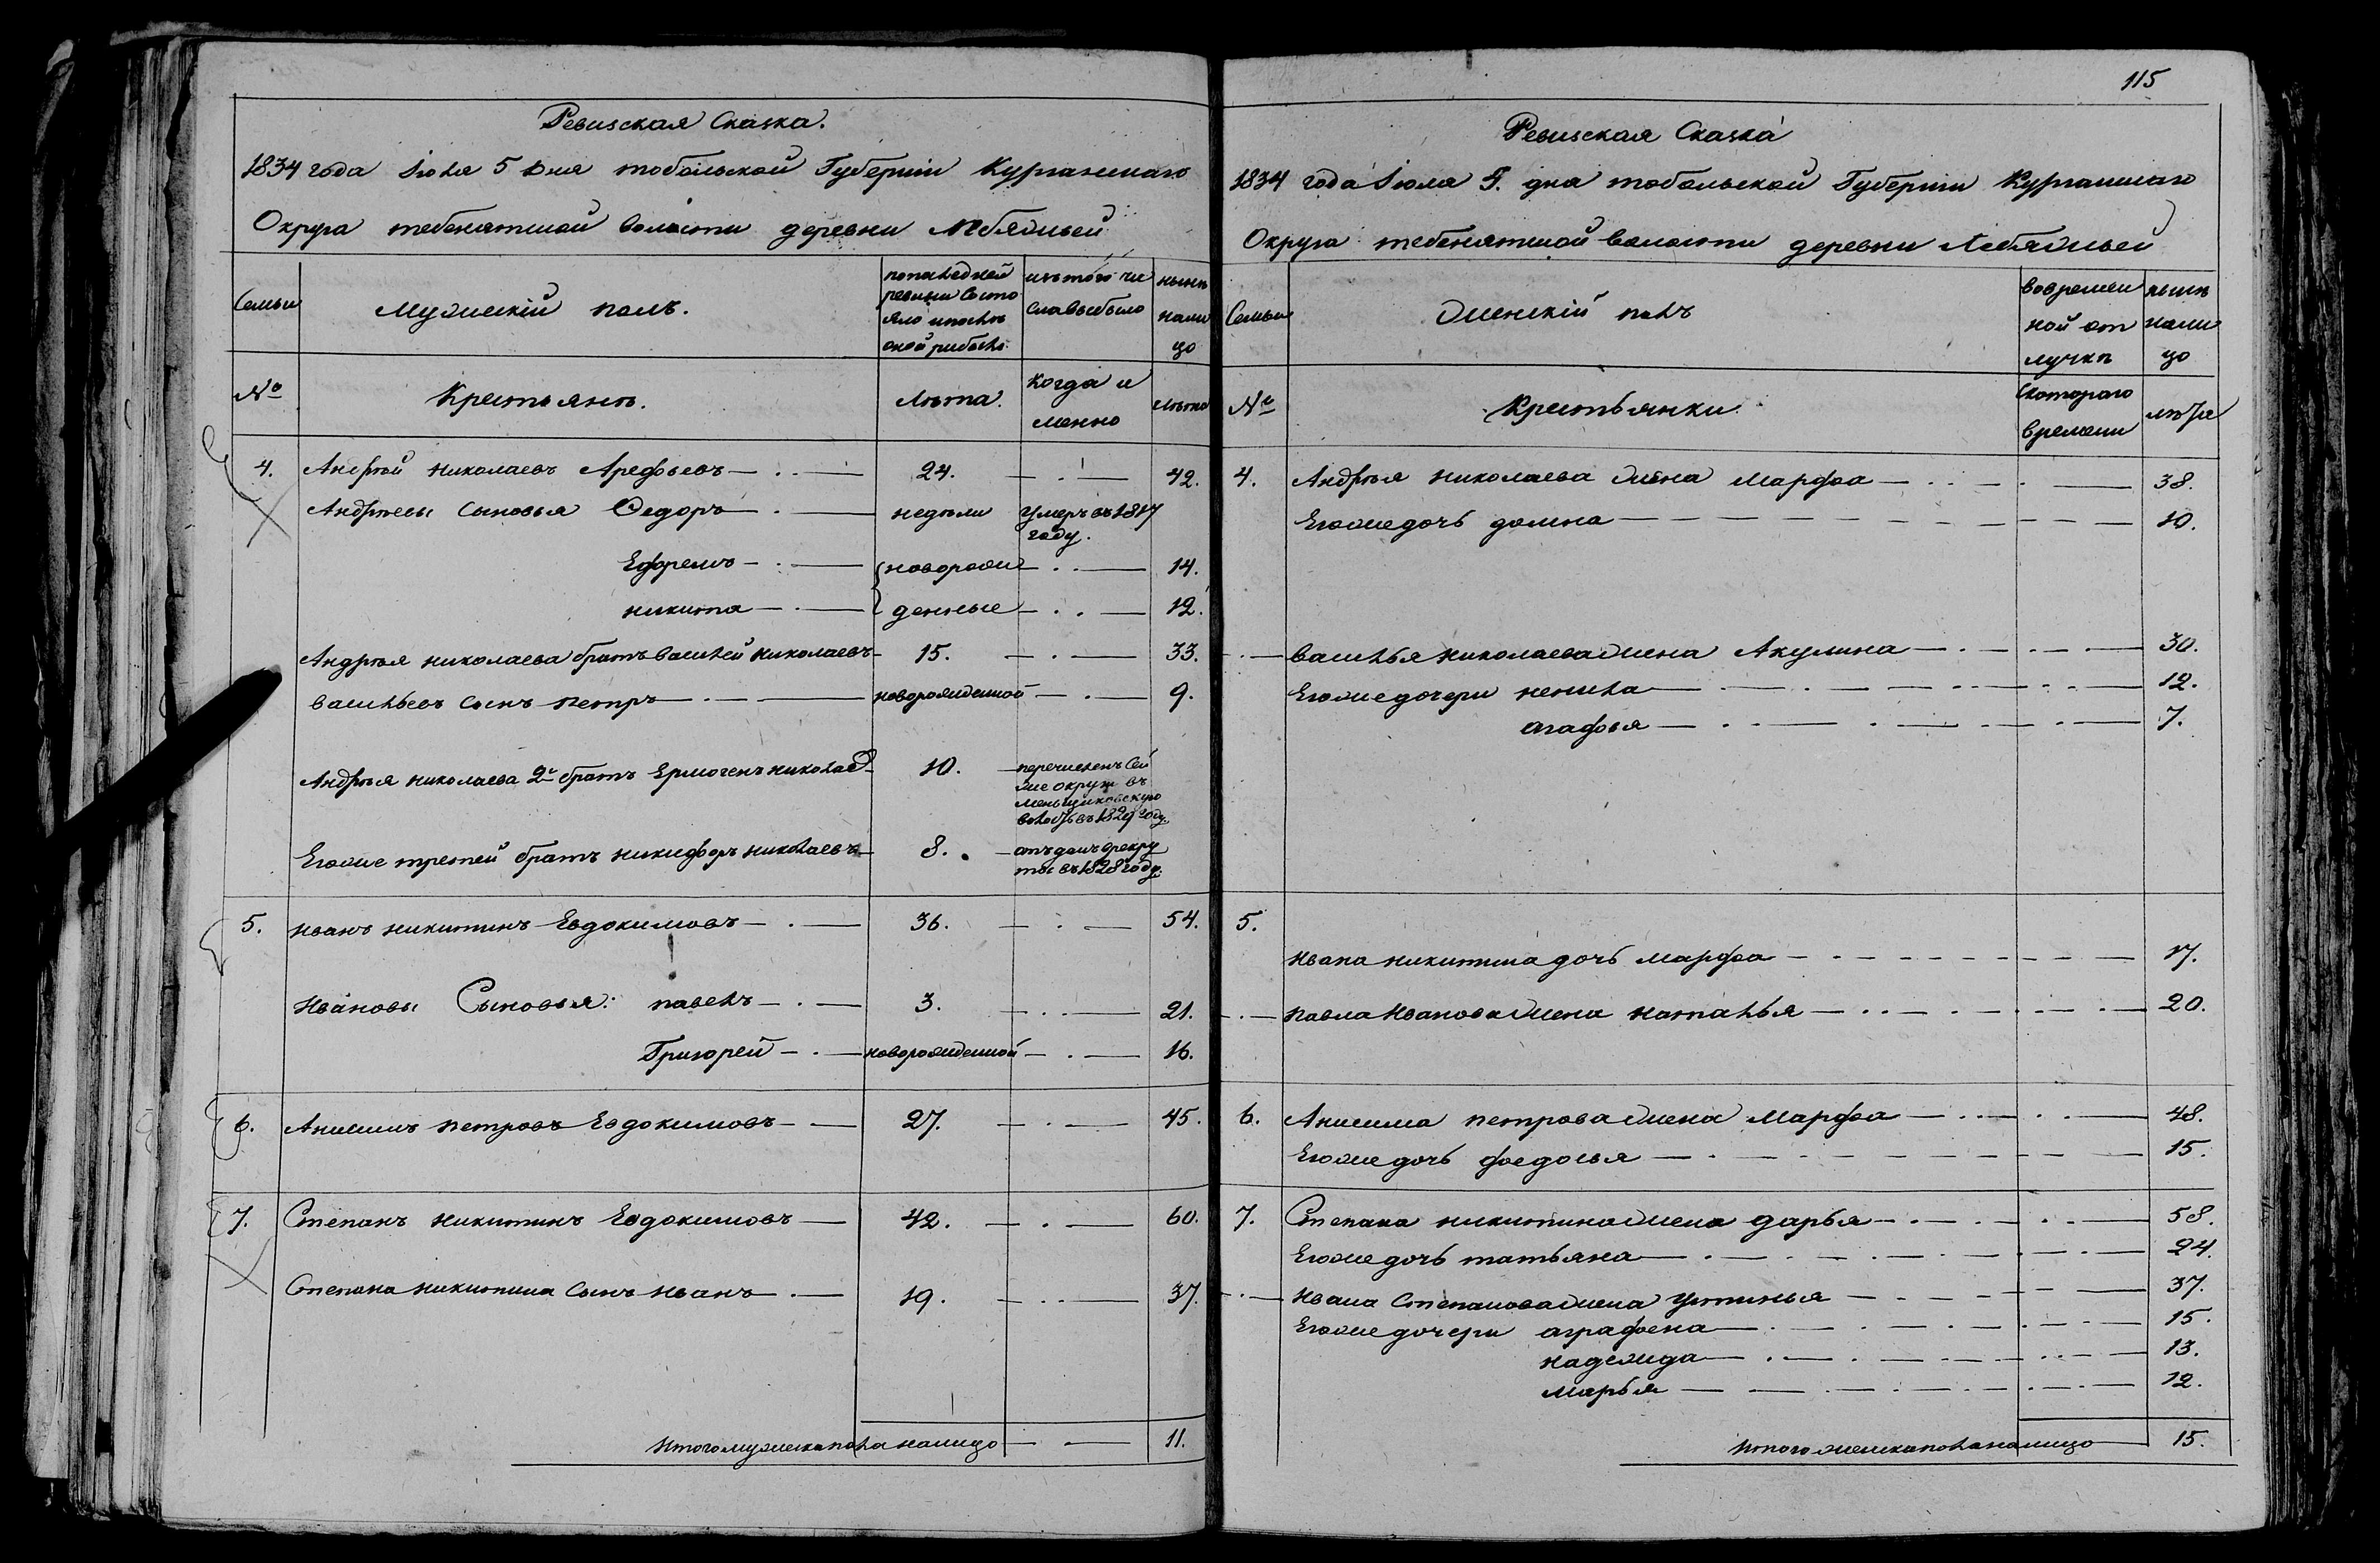 Ревизская Сказка.
1834 года Іюля 5 дня тобольской Губерніи Курганскаго
Округа тебенятской волости деревни Лебяжьей
Семьи
Мужескій полъ.
попоследней ревизіи состо яло ипослѣ оной рибыло
изътого чи славыбыло
нынѣ нали цо
№
Крестьянъ.
Лѣта.
когда и менно
Лѣта
4. Андрѣй николаевъ Арефьевъ — 24. — 42.
Андрѣевы сыновья Федоръ — недѣли умеръ въ 1817
году.
Ефремъ — новорож — 14.
никита — денные — 12.
Андрѣя николаева братъ василей николаевъ — 15. — 33.
васильевъ сынъ петръ — новорожденной — 9.
Андрѣя николаева 2й братъ Ермогенъ николаев — 10. — перечисленъ сей
же округи въ
меньщиковскую
волость въ 1829 году.
Егоже третей братъ никифоръ николаевъ — 8. — отъданъ врекру
ты въ 1828 году.
5. иванъ никитинъ Евдокимовъ — 36. — 54.
ивановы Сыновья: павелъ — 3. — 21.
Григорей — новорожденной — 16.
6. Анисимъ петровъ Евдокимовъ — 27. — 45.
7. Степанъ никитинъ Евдокимовъ — 42. — 60.
Степана никитина сынъ иванъ — 19. — 37.
итогомужескаполаналицо — 11.
115
Ревизская Сказка
1834 года Іюля 5. дня тобольской Губерніи Курганскаго
Округа тебенятской волости деревни Лебяжьей
Семьи
Женскій полъ
вовремен ной от лучкѣ
нынѣ нали цо
№
Крестьянки
Скотораго времени
лѣта
4. Андрѣя николаева жена марфа — 38.
Егоже дочь домна — 10.
васильяниколаеважена Акулина — 30.
Егожедочери ненила — 12.
агафья — 7.
5.
ивана никитина дочь марфа — 17.
павла иванова жена наталья — 20.
6. Анисима петрова жена марфа — 48.
Егожедочь федосья — 15.
7. Степана никитинажена дарья — 58.
Егожедочь татьяна — 24.
ивана Степановажена устинья — 37.
Егожедочери аграфена — 15.
надежда — 13.
марья — 12.
итогоженскаполаналицо — 15.